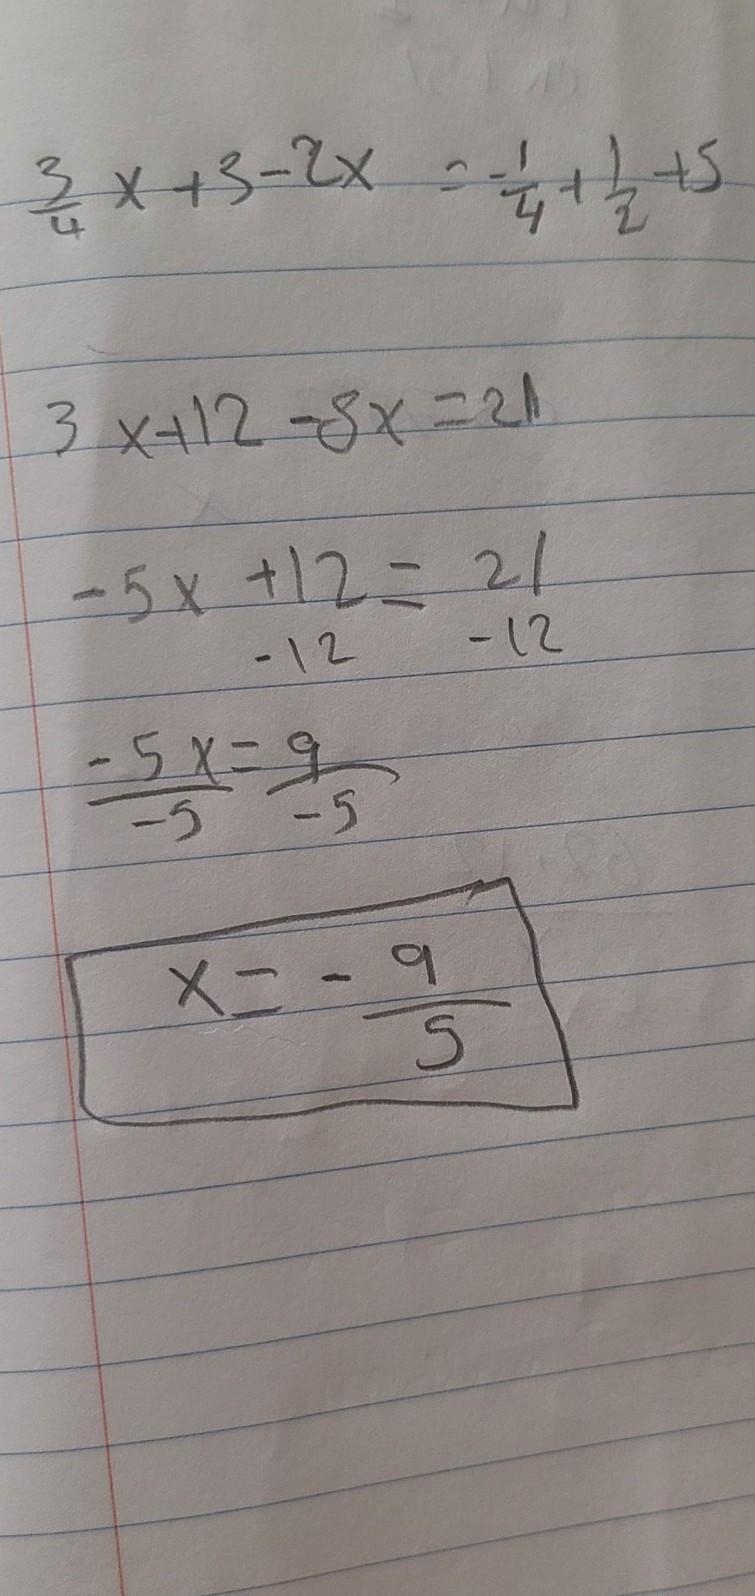 3/4 x + 3 - 2x = -1/4 + 1/2 + 5
3x + 12 - 8x = 21
-5x + 12 = 21
-12 -12
-5x = 9
-5 -5
x = - 9/5